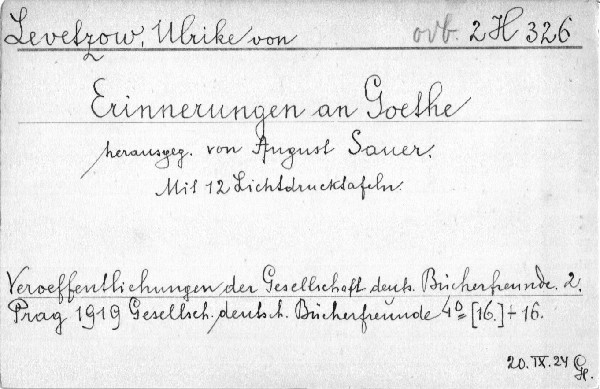 Levetzow, Ulrike von ovb. 2 H 326
Erinnerungen an Goethe
herausgeg. von August Sauer.
Mit 12 Lichtdrucktafeln.
Veroeffentlichungen der Gesellschaft deuts. Bücherfreunde. 2.
Prag 1919 Gesellsch. deutsch. Bücherfreunde 4º [16.] + 16.
20. IX. 24